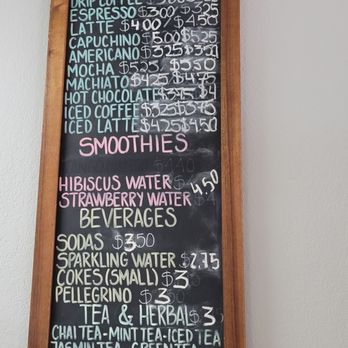 DRIP COFFEE
ESPRESSO $3.00 $3.50
LATTE $4.00 $4.50
CAPUCHINO $5.00 $5.25
AMERICANO $3.25 $3.50
MOCHA $5.25 $5.50
MACHIATO $4.25 $4.75
HOT CHOCOLATE $3.75 $4
ICED COFFEE $3.25 $3.75
ICED LATTE $4.25 $4.50
SMOOTHIES
HIBISCUS WATER $
STRAWBERRY WATER 4.50
BEVERAGES
SODAS $3.50
SPARKLING WATER $2.75
COKES (SMALL) $3
PELLEGRINO $3
TEA & HERBAL $3
CHAI TEA-MINT TEA-ICED TEA
JASMIN TEA-GREEN TEA